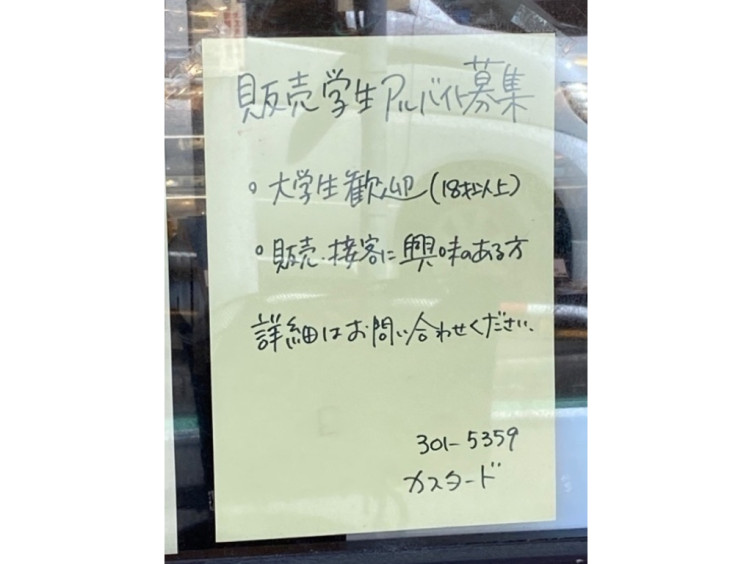 販売学生アルバイト募集
○大学生歓迎(18才以上)
○販売・接客に興味のある方
詳細はお問い合わせください。
301-5359
カスタード